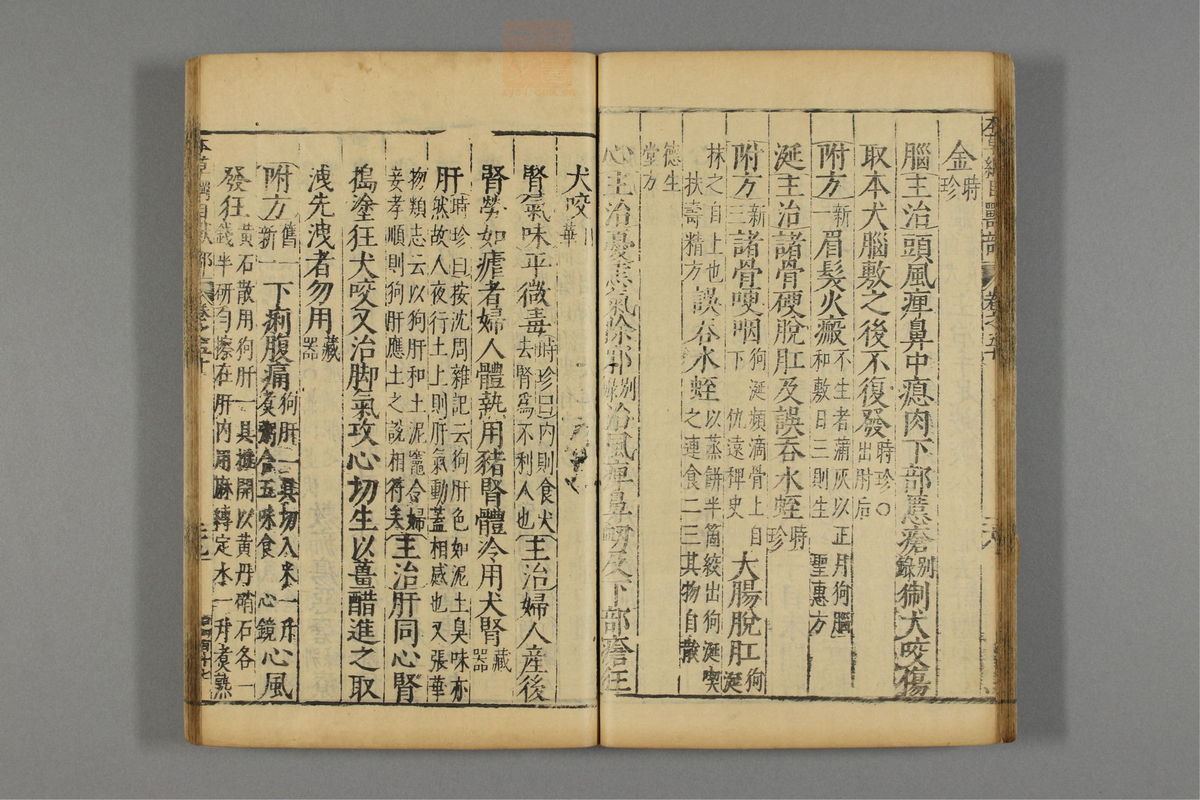 本草綱目獸部 卷之五十
金時珍
腦主治頭風痺鼻中瘜肉下部䘌瘡别錄猘犬咬傷
取本犬腦敷之後不復發時珍○出肘后
附方新一眉髮火瘢不生者蒲灰以正月狗腦和敷日三則生聖惠方
涎主治諸骨硬脫肛及誤吞水蛭時珍
附方新三諸骨哽咽狗涎頻滴骨上自下仇遠稗史大腸脫肛狗涎
抹之自上也扶壽精方誤吞水蛭以蒸餅半箇絞出狗涎喫之連食二三其物自散
德生堂方
心主治憂恚氣除邪别錄治風痺鼻衂及下部瘡狂
犬咬日華
腎氣味平微毒時珍曰内則食犬去腎爲不利人也主治婦人産後
腎勞如瘧者婦人體熱用豬腎體冷用犬腎藏器
肝時珍曰按沈周雜記云狗肝色如泥土臭味亦然故人夜行土上則肝氣動蓋相感也又張華
物類志云以狗肝和土泥竈令婦妾孝順則狗肝應土之說相符矣主治肝同心腎
搗塗狂犬咬又治脚氣攻心切生以薑醋進之取
洩先洩者勿用藏器
附方舊一新一下痢腹痛狗肝一具切入米一升煑粥合五味食心鏡心風
發狂黃石散用狗肝一具批開以黃丹硝石各一錢半研勻擦在肝内用麻縛定水一升煑熟